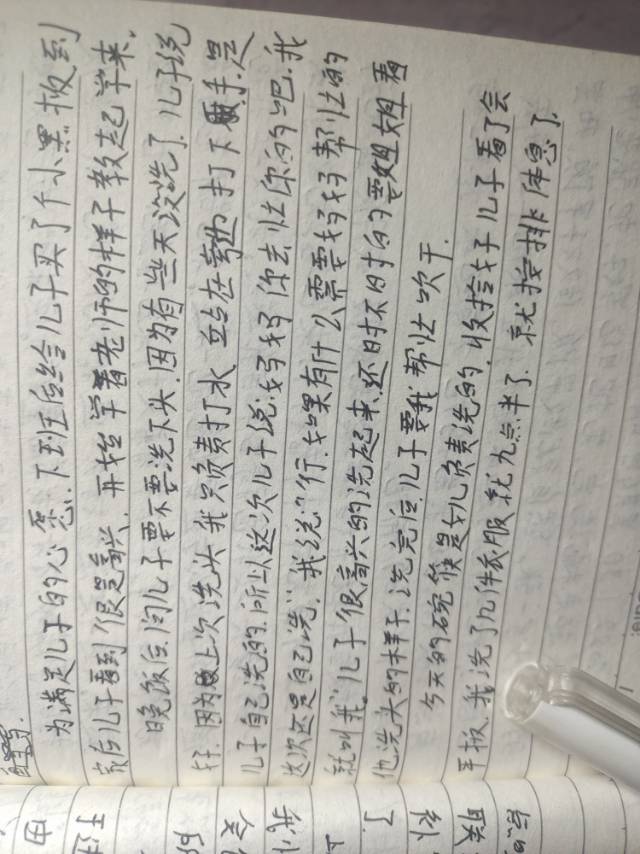 为满足儿子的心愿.下班后给儿子买了个小黑板到
家后儿子看到很是高兴.开始学着老师的样子教起学来.
晚饭后问儿子要不要洗下头.因为有些天没洗了.儿子说
好.因为上次洗头我只负责打水 站在旁边 打下手.是
儿子自己洗的.所以这次儿子说:妈妈 你去忙你的吧.我
这次还是自己洗".我说"行.如果有什么需要妈妈帮忙的
就叫我."儿子很高兴的洗起来.还时不时的要姐姐看
他洗头的样子.洗完后.儿子要我帮忙吹干.
今天的碗筷是女儿负责洗的.收拾好 儿子看了会
平板.我洗了几件衣服 就九点半了.就按排休息了.